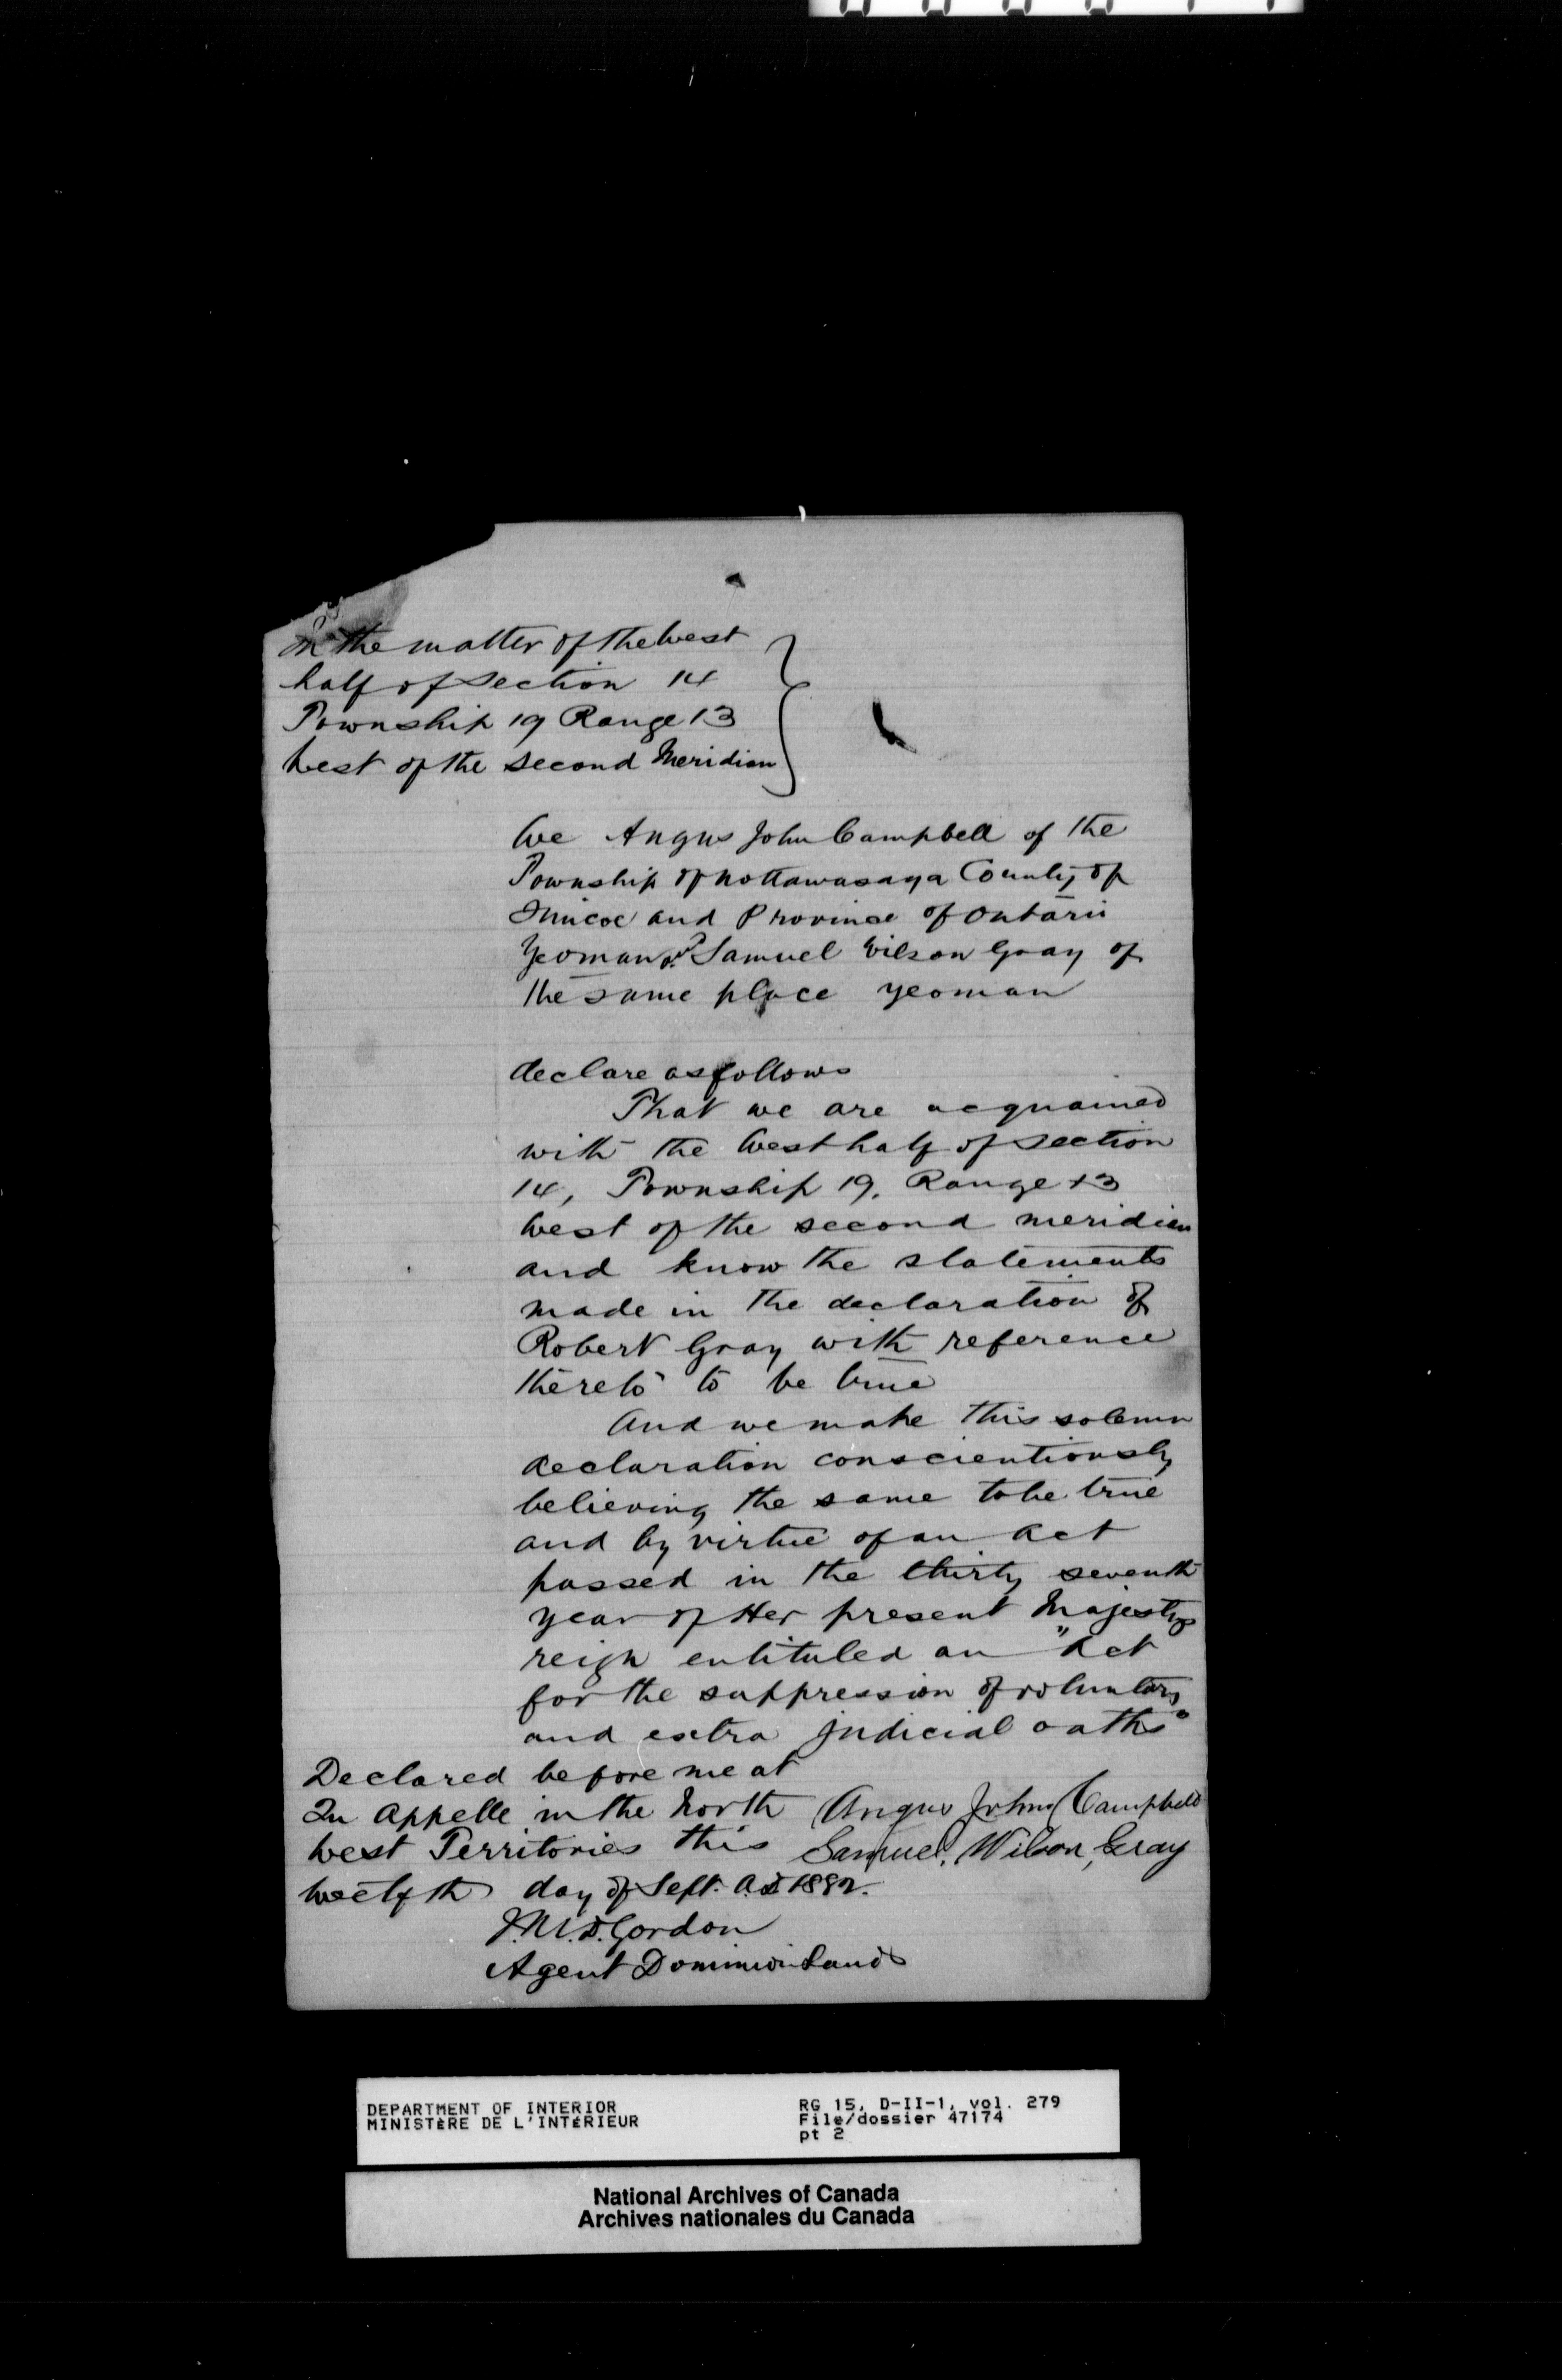 In the matter of the West
half of Section 14
Township 19 Range 13
West of the second Meridian
We Angus John Campbell of the
Township of Nottawasaga County of
Simcoe and Province of Ontario
Yeoman & Samuel Wilson Gray of
the same place yeoman
declare as follows
That we are acquained
with the West half of Section
14, Township 19, Range 13
West of the second meridian
and know the statements
made in the declaration of
Robert Gray with reference
thereto to be true
And we make this solemn
declaration conscientiously
believing the same to be true
and by virtue of an Act
passed in the thirty seventh
year of Her present Majestys
reign entituled an "Act
for the suppression of voluntary
and extra judicial oaths"
Declared before me at
Qu Appelle in the North
West Territories this
twelfth day of Sept. A.D 1882.
Angus John Campbell
Samuel Wilson Gray
Gordon
Agent Dominion Lands
DEPARTMENT OF INTERIOR
MINISTÈRE DE L'INTÉRIEUR
RG 15, D-II-1, vol. 279
File/dossier 47174
pt 2
National Archives of Canada
Archives nationales du Canada